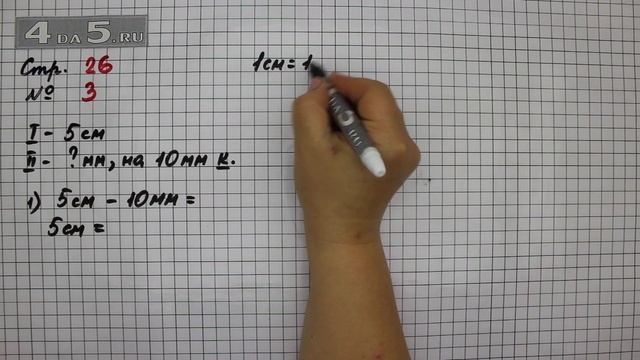 4 DA 5.RU
Стр. 26
№ 3
I - 5см
II - ? мм, на 10мм к.
1) 5см - 10мм =
5см =
1см = 1
DA 5.RU